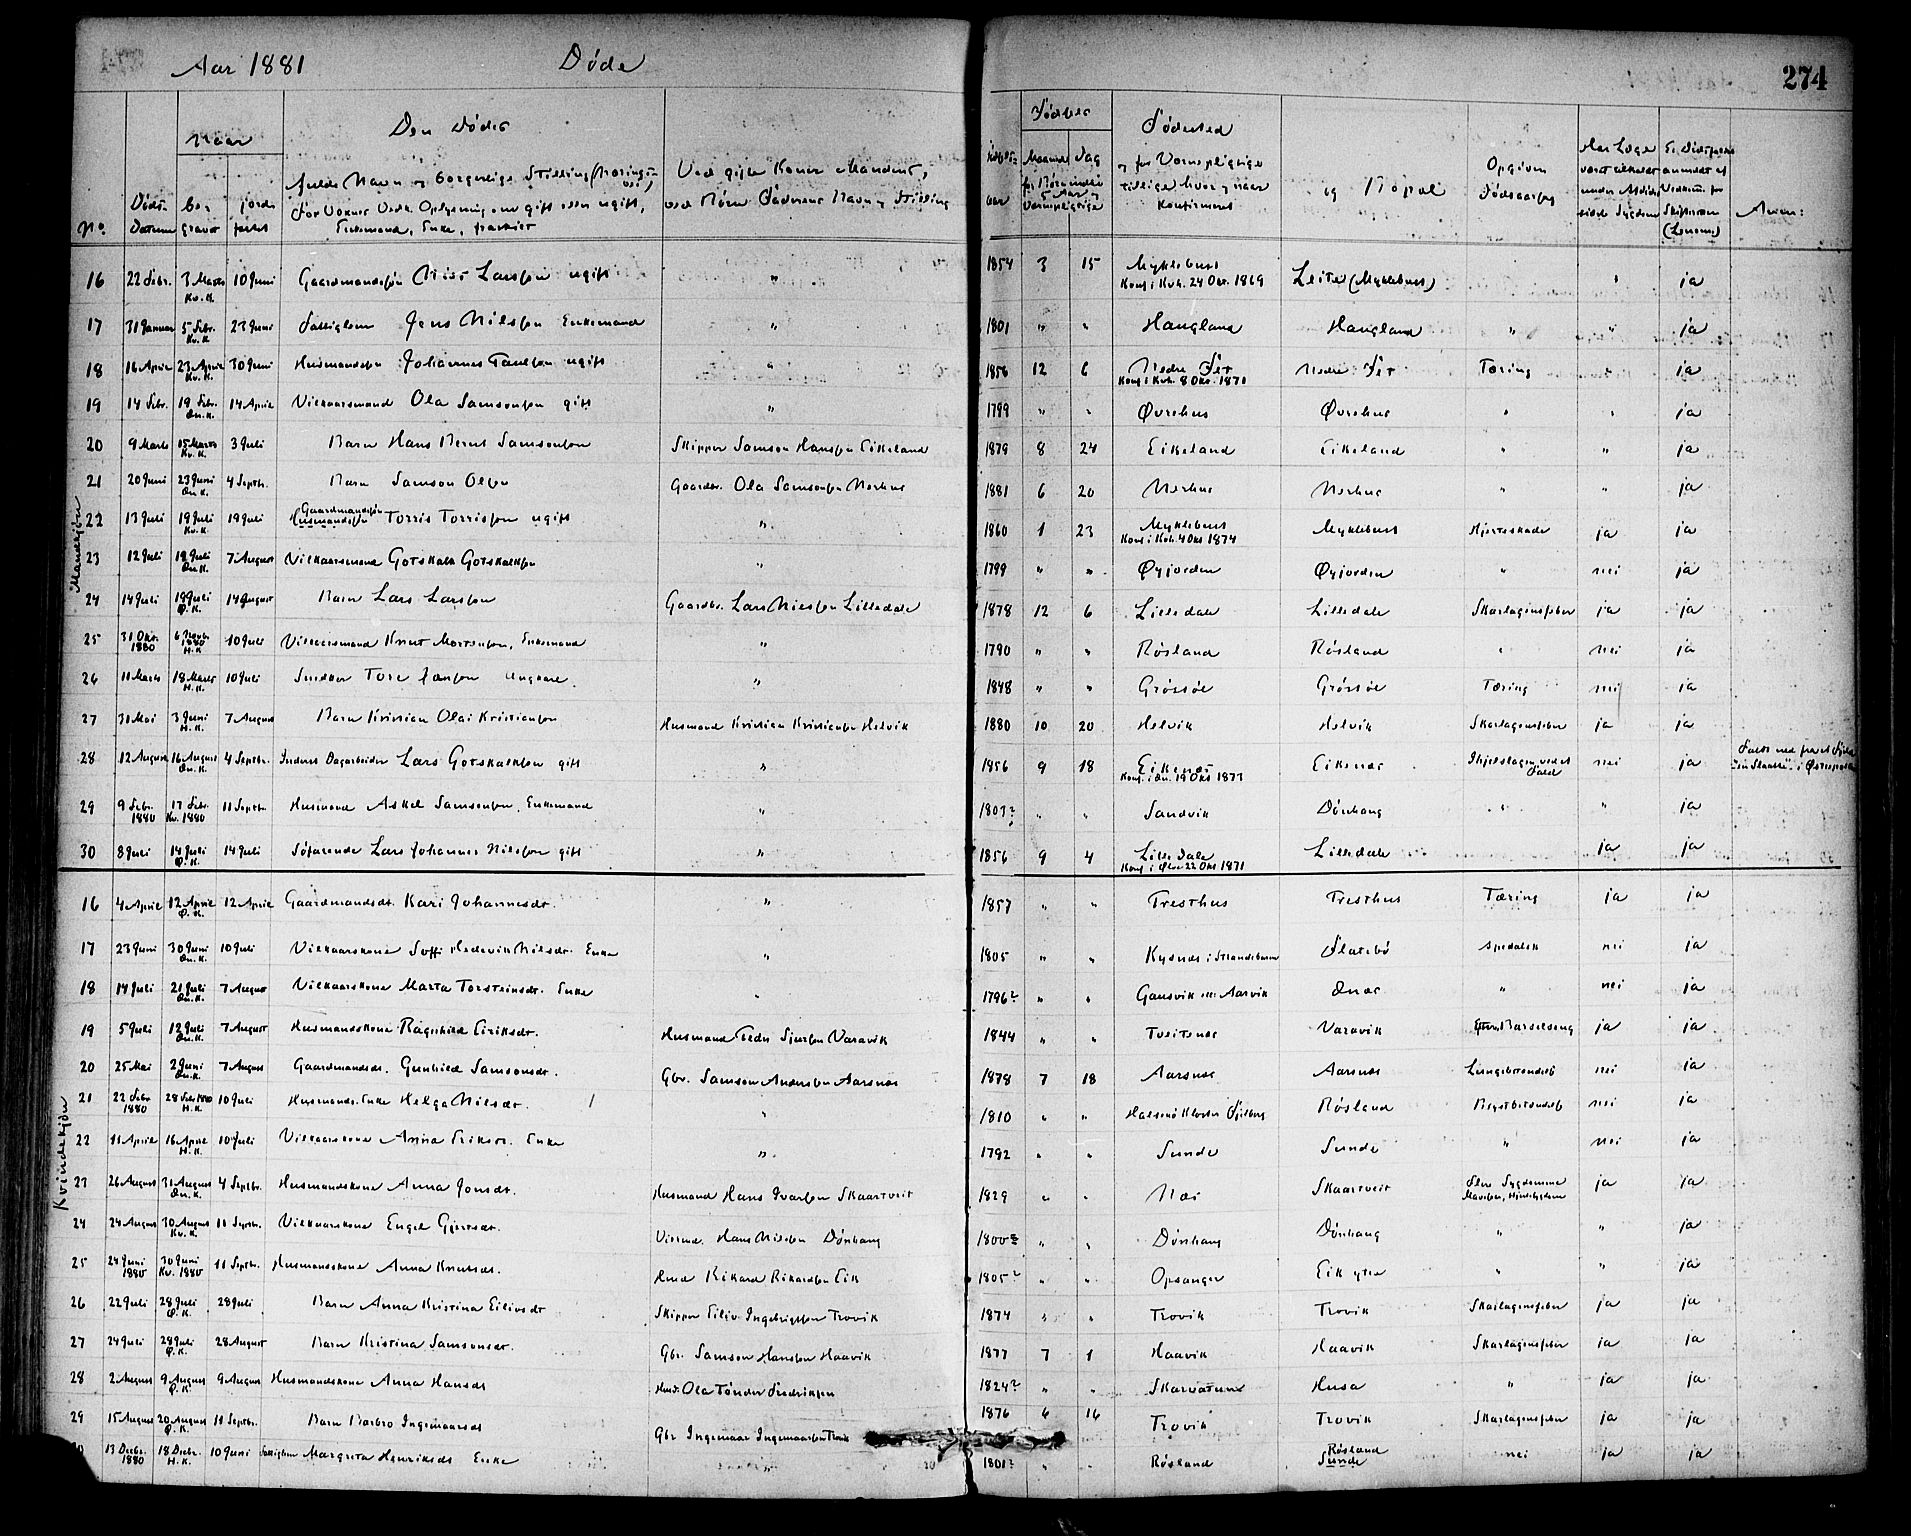 Aar 1881 Døde
274
Naar
Den Dødes
No.
Døds-Datum
be-gravet
jords-fæstet
fulde Navn og borgerlige Stilling
for Voxne Vedk. Oplysning om gift eller ugift,
Enkemand, Enke, fraskilt
Ved gifte Koner Mandens,
ved Børn Faderens Navn og Stilling
Fødsels-
aar
Maaned
Dag
Fødested
og for Vernepligtige
tillige hvor og naar
konfirmeret
og Bopæl
Opgiven
Dødsaarsag
Har Læge
været tilkaldt
under Afdødes
sidste Sygdom
Er Dødsfaldet
anmeldt af
Vedkom. for
Skifteretten
(Lensm.)
Anm:
Mandkjøn
16 22 Febr. 3 Marts Kv. K. 10 Juni Gaardmandssøn Nils Larssøn ugift " 1854 3 15 Myklebust Konf. i Kvh. 24 Okt. 1869 Leite (Myklebust) " ja
17 31 Januar 5 Febr. Kv. K. 23 Juni Fattiglem Jens Nilssøn Enkemand " 1801 " " Haugland Haugland " " ja
18 16 April 23 April Kv. K. 30 Juni Husmandssøn Johannes Paulssøn ugift " 1856 12 6 Nedre Fet Konf. i Kvh. 8 Okt. 1871 Nedre Fet Tæring " ja
19 14 Febr. 19 Febr. Øn. K. 14 April Vilkaarsmand Ola Samsonssøn gift " 1799 " " Øvrehus Øvrehus " " ja
20 9 Marts 15 Marts Kv. K. 3 Juli Barn Hans Bernt Samsonssøn Skipper Samson Hanssøn Eikeland 1879 8 24 Eikeland Eikeland " " ja
21 20 Juni 23 Juni Øn. K. 4 Septbr. Barn Samson Olssøn Gaardbr. Ola Samsonssøn Nerhus 1881 6 20 Nerhus Nerhus " " ja
22 13 Juli 19 Juli Kv. K. 19 Juli Gaardmandssøn Husmandssøn Torris Torrissøn ugift " 1860 1 23 Myklebust Konf. i Kvh. 4 Okt 1874 Myklebust Hjerteskade ja ja
23 12 Juli 18 Juli Øn. K. 7 August Vilkaarsmand Gotskalk Gotskalkssøn " 1799 " " Øyjorden Øyjorden " nei ja
24 14 Juli 18 Juli Ø. K. 14 August Barn Lars Larssøn Gaardbr. Lars Nilssøn Lilledale 1878 12 6 Lilledale Lilledale Skarlagensfeber ja ja
25 31 Okt. 1880 6 Novbr 1880 H. K. 10 Juli Vilkaarsmand Knut Mortenssøn, Enkemand " 1790 " " Røsland Røsland " nei ja
26 11 Marts 18 Marts H. K. 10 Juli Snedker Tore Janssøn Ungkarl. " 1848 " " Grøssøe Grøssøe Tæring nei ja
27 31 Mai 3 Juni H. K. 7 August Barn Kristian Olai Kristianssøn Husmand Kristian Kristianssøn Helvik 1880 10 20 Helvik Helvik Skarlagensfeber ja ja
28 12 August 16 August Øn. K. 4 Septbr. Inderst Dagarbeider Lars Gotskalkssøn gift " 1856 9 18 Eikenæs Konf. i Øn. 19 Okt 1873 Eikenæs Ihjelslagen ved et Fald nei ja Faldt ned fra et Fjeld
29 9 Febr. 1880 17 Febr. Kv. 1880 11 Septbr. Husmand Askel Samsonssøn, Enkemand " 1803? " " Sandvik Dønhaug " " ja
30 8 Juli 14 Juli Ø. K. 14 Juli Søfarende Lars Johannes Nilssøn gift " 1856 9 4 Lilledale Konf. i Ølve 22 Okt 1871 Lilledale ja ja
Kvindekjøn
16 4 April 12 April Ø. K. 12 April Gaardmandsdt. Kari Johannesdt. " 1857 " " Tresthus Tresthus Tæring ja ja
17 23 Juni 30 Juni Øn. K. 10 Juli Vilkaarskone Soffi Hedevik Nilsdt. Enke " 1805 " " Kysnes i Strandebarm Flatebø Spedalsk nei ja
18 14 Juli 21 Juli Øn. K. 7 August Vilkaarskone Marta Torsteinsdt. Enke " 1796? " " Gansvik ell. Aarvik Ænes " nei ja
19 5 Juli 12 Juli Øn. K. 7 August Husmandskone Ragnhild Eiriksdt. Husmand Peder Sjurssøn Varavik 1844 " " Tveitenæs Varavik Efter Barselseng ja ja
20 25 Mai 2 Juni Øn. K. 7 August Gaardmandsdt. Gunhild Samsonsdt. Gbr. Samson Anderssøn Aarsnæs 1878 7 18 Aarsnæs Aarsnæs Lungebetændelse nei ja
21 22 Febr 1880 28 Febr 1880 H. K. 10 Juli Husmands-Enke Helga Nilsdt. " 1810 " " Halsnø Kloster Fjelberg Røsland Brystbetændelse nei ja
22 11 April 16 April H. K. 10 Juli Vilkaarskone Anna Eriksdt. Enke " 1792 " " Sunde Sunde " nei ja
23 26 August 31 August Øn. K. 4 Septbr. Husmandskone Anna Jonsdt. Husmand Hans Ivarssøn Skaartveit 1829 " " Næs Skaartveit Flere Sygdomme ja ja
24 24 August 30 August Kv. K. 11 Septbr. Vilkaarskone Engel Gjertsdt. Hans Nilssøn Dønhaug 1800? " " Dønhaug Dønhaug " " ja
25 24 Juni 1880 30 Juni Kv. 1880 11 Septbr. Husmandskone Anna Knutsdt. Husmd Rikard Rikardssøn Eik 1805? " " Opsanger Eik ytre " " ja
26 22 Juli 28 Juli Ø. K. 28 Juli Barn Anna Kristina Eilivsdt Skipper Eiliv Ingebrigtssøn Trovik 1874 " " Trovik Trovik Skarlagensfeber ja ja
27 24 Juli 28 Juli Ø. K. 28 August Barn Kristina Samsonsdt. Gbr. Samson Hanssøn Haavik 1877 7 1 Haavik Haavik Skarlagensfeber ja ja
28 2 August 9 August Ø. K. 9 August Husmandskone Anna Hansdt Husm. Ola Tønder Fredrikssøn 1824? " " Skarvatun Husa " ja ja
29 15 August 20 August Ø. K. 11 Septbr. Barn Barbro Ingemarsdt Gbr Ingemar Ingemarssøn Trovik 1876 6 16 Trovik Trovik Skarlagensfeber ja ja
13 Decbr. 1880 18 Decbr. H. K. 10 Juni Fattiglem Margreta Henriksdt Enke " 1801? " " Røsland Røsland Sunde nei ja ja